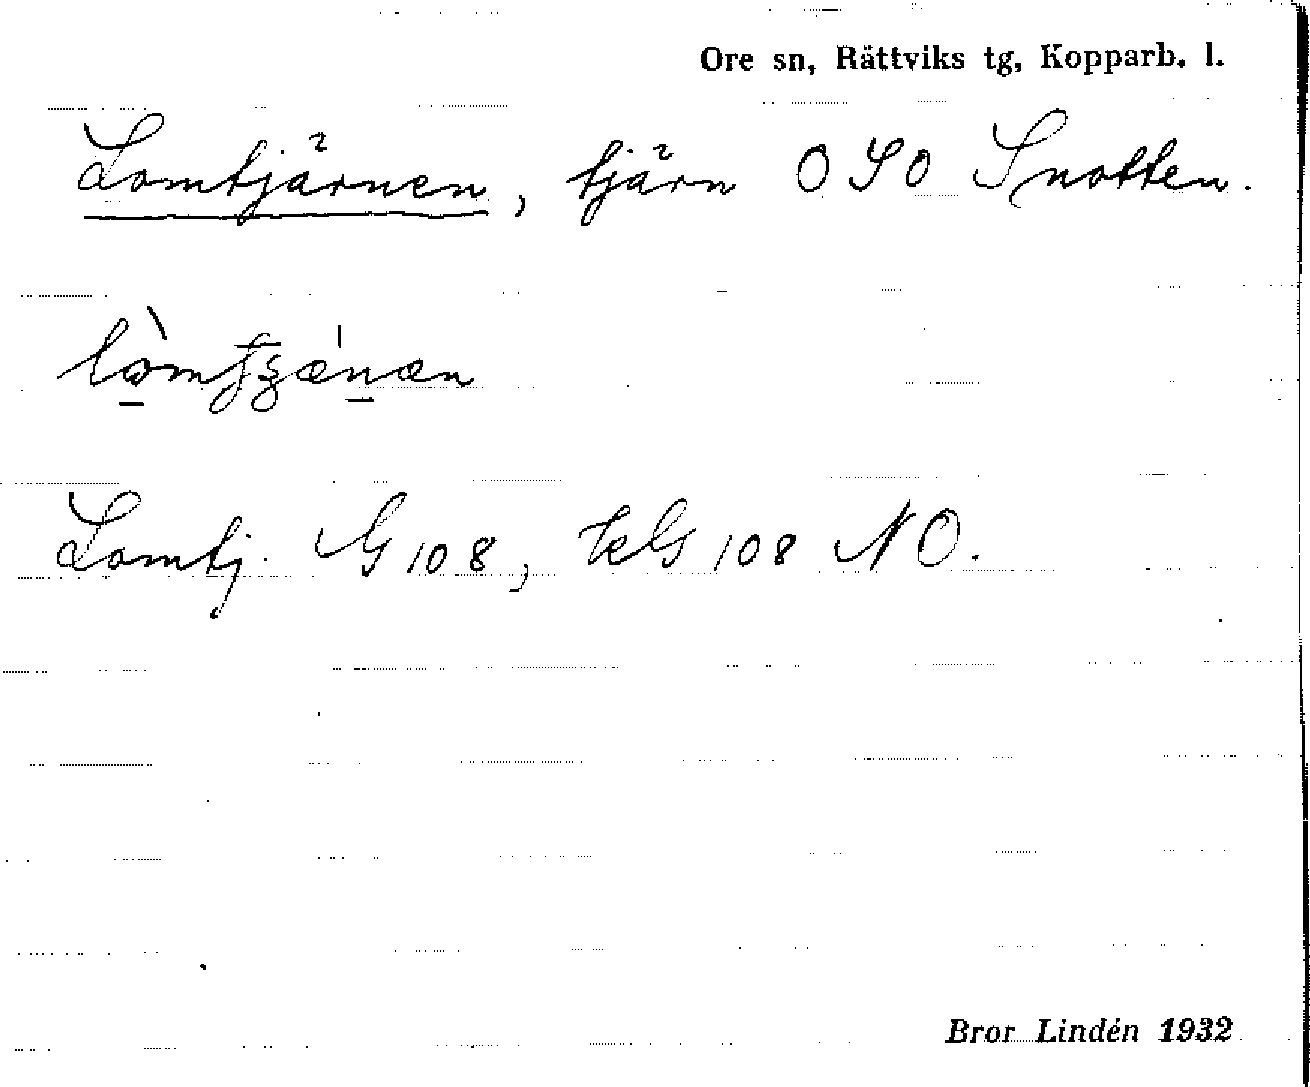 Ore sn, Rättviks tg, Kopparb. l.
Lomtjärnen, tjärn OSO Snotten.
Lomtj. G 108, G 108 NO.
Bror Lindén 1932